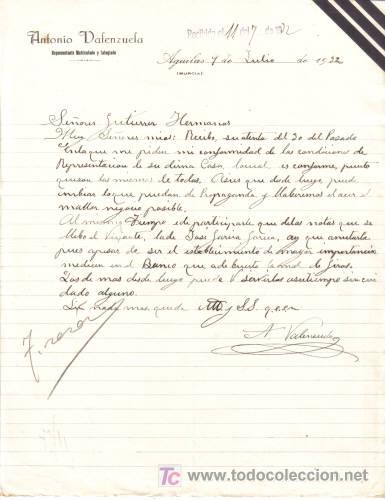 Antonio Valenzuela
Representante Matriculado y Colegiado
Recibido el 11 de 7 de 1932
Aguilas 7 de Julio de 1932
(MURCIA)
Señores Gutierrez Hermanos
Muy Señores mios: Recibo, su atenta del 30 del Pasado
En la que me piden mi conformidad de las condiciones de
Representacion de su digna Casa, la cual es conforme, puesto
que son las mismas de todas. Asi es que desde luego puede
lo que puedan de Propaganda y Haberemos el acer el
mallor negocio posible.
Al mismo Tiempo e de participarle que de las notas que se
llebo el Viajante, la de José Garcia Garcia, ay que anularla
pues apesar de ser el establecimiento de mayor importancia
me dicen en el Banco que
Las de mas desde luego puede servirlas a su tiempo sin cui
dado alguno.
Sin nada mas queda Atto y S.S. q.e.e.m
A. Valenzuela
TC
todocoleccion.net
www.todocoleccion.net